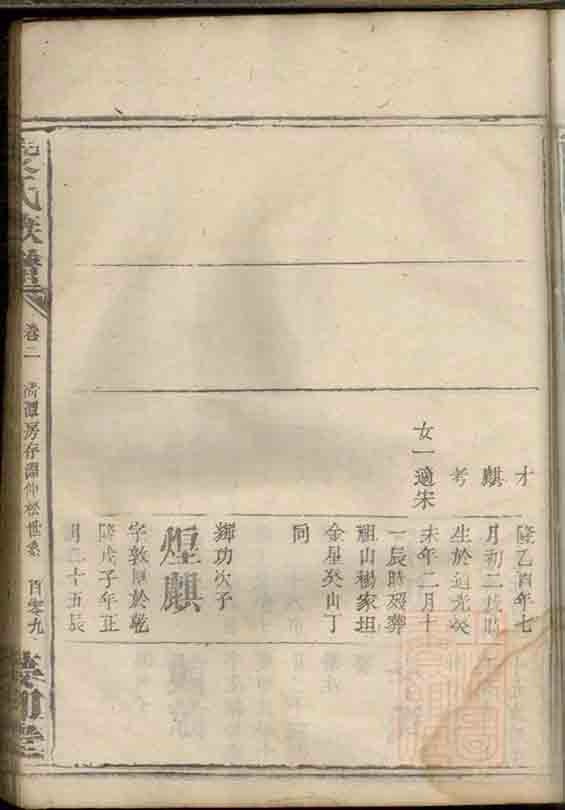 才
麒
考
女一適宋
隆乙酉年七
月初二戌時
生於道光癸
未年二月十
一辰時歿葬
祖山楊家坦
金星癸山丁
向
輝功次子
煌麒
字敦厚於乾
隆戊子年正
月二十五辰
氏族譜
卷二
清潭房存淵仲松世系
百零九